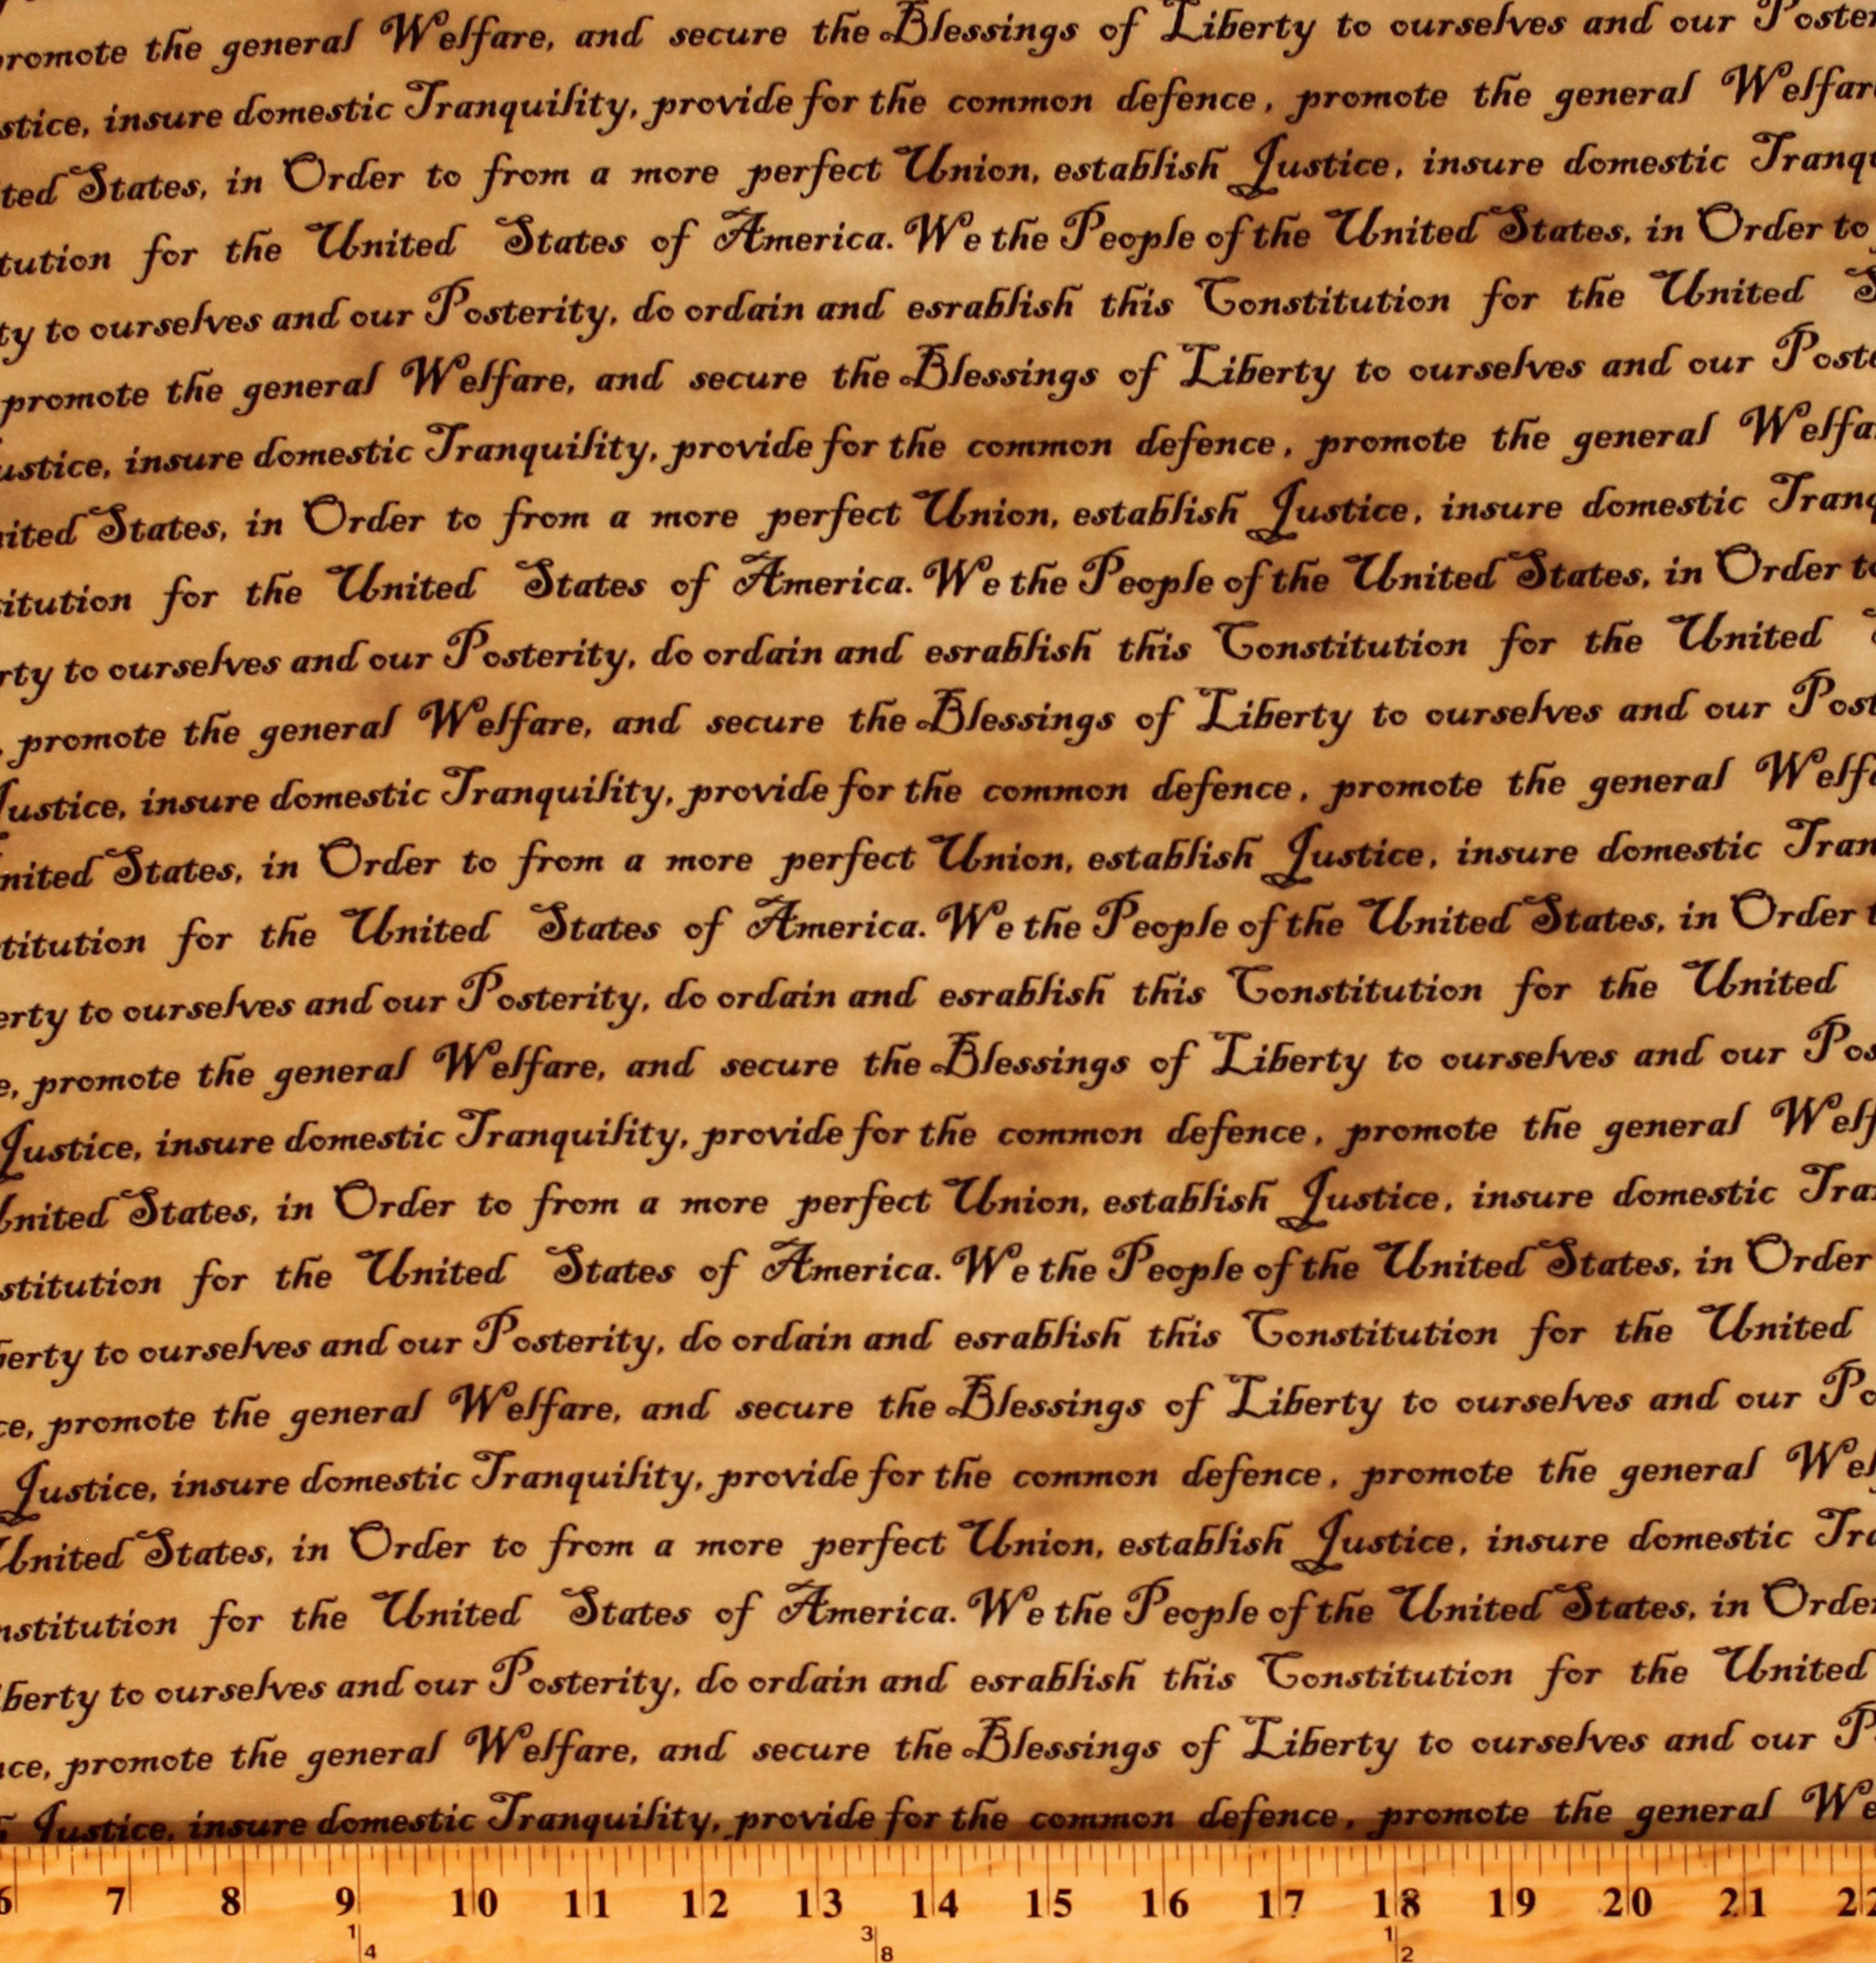 promote the general Welfare, and secure the Blessings of Liberty to ourselves and our
insure domestic Tranquility, provide for the common defence, promote the general
States, in Order to from a more perfect Union, establish Justice, insure domestic
for the United States of America. We the People of the United States, in Order to
to ourselves and our Posterity, do ordain and esrablish this Constitution for the United
promote the general Welfare, and secure the Blessings of Liberty to ourselves and our
insure domestic Tranquility, provide for the common defence, promote the general
States, in Order to from a more perfect Union, establish Justice, insure domestic
for the United States of America. We the People of the United States, in Order to
to ourselves and our Posterity, do ordain and esrablish this Constitution for the United
, promote the general Welfare, and secure the Blessings of Liberty to ourselves and our
Justice, insure domestic Tranquility, provide for the common defence, promote the general
States, in Order to from a more perfect Union, establish Justice, insure domestic
for the United States of America. We the People of the United States, in Order
to ourselves and our Posterity, do ordain and esrablish this Constitution for the United
promote the general Welfare, and secure the Blessings of Liberty to ourselves and our
Justice, insure domestic Tranquility, provide for the common defence, promote the general
United States, in Order to from a more perfect Union, establish Justice, insure domestic
for the United States of America. We the People of the United States, in Order
to ourselves and our Posterity, do ordain and esrablish this Constitution for the United
promote the general Welfare, and secure the Blessings of Liberty to ourselves and our
Justice, insure domestic Tranquility, provide for the common defence, promote the general
United States, in Order to from a more perfect Union, establish Justice, insure domestic
for the United States of America. We the People of the United States, in Order
to ourselves and our Posterity, do ordain and esrablish this Constitution for the United
promote the general Welfare, and secure the Blessings of Liberty to ourselves and our
Justice, insure domestic Tranquility, provide for the common defence, promote the general
6 7 8 9 10 11 12 13 14 15 16 17 18 19 20 21 22
1/4 3/8 1/2